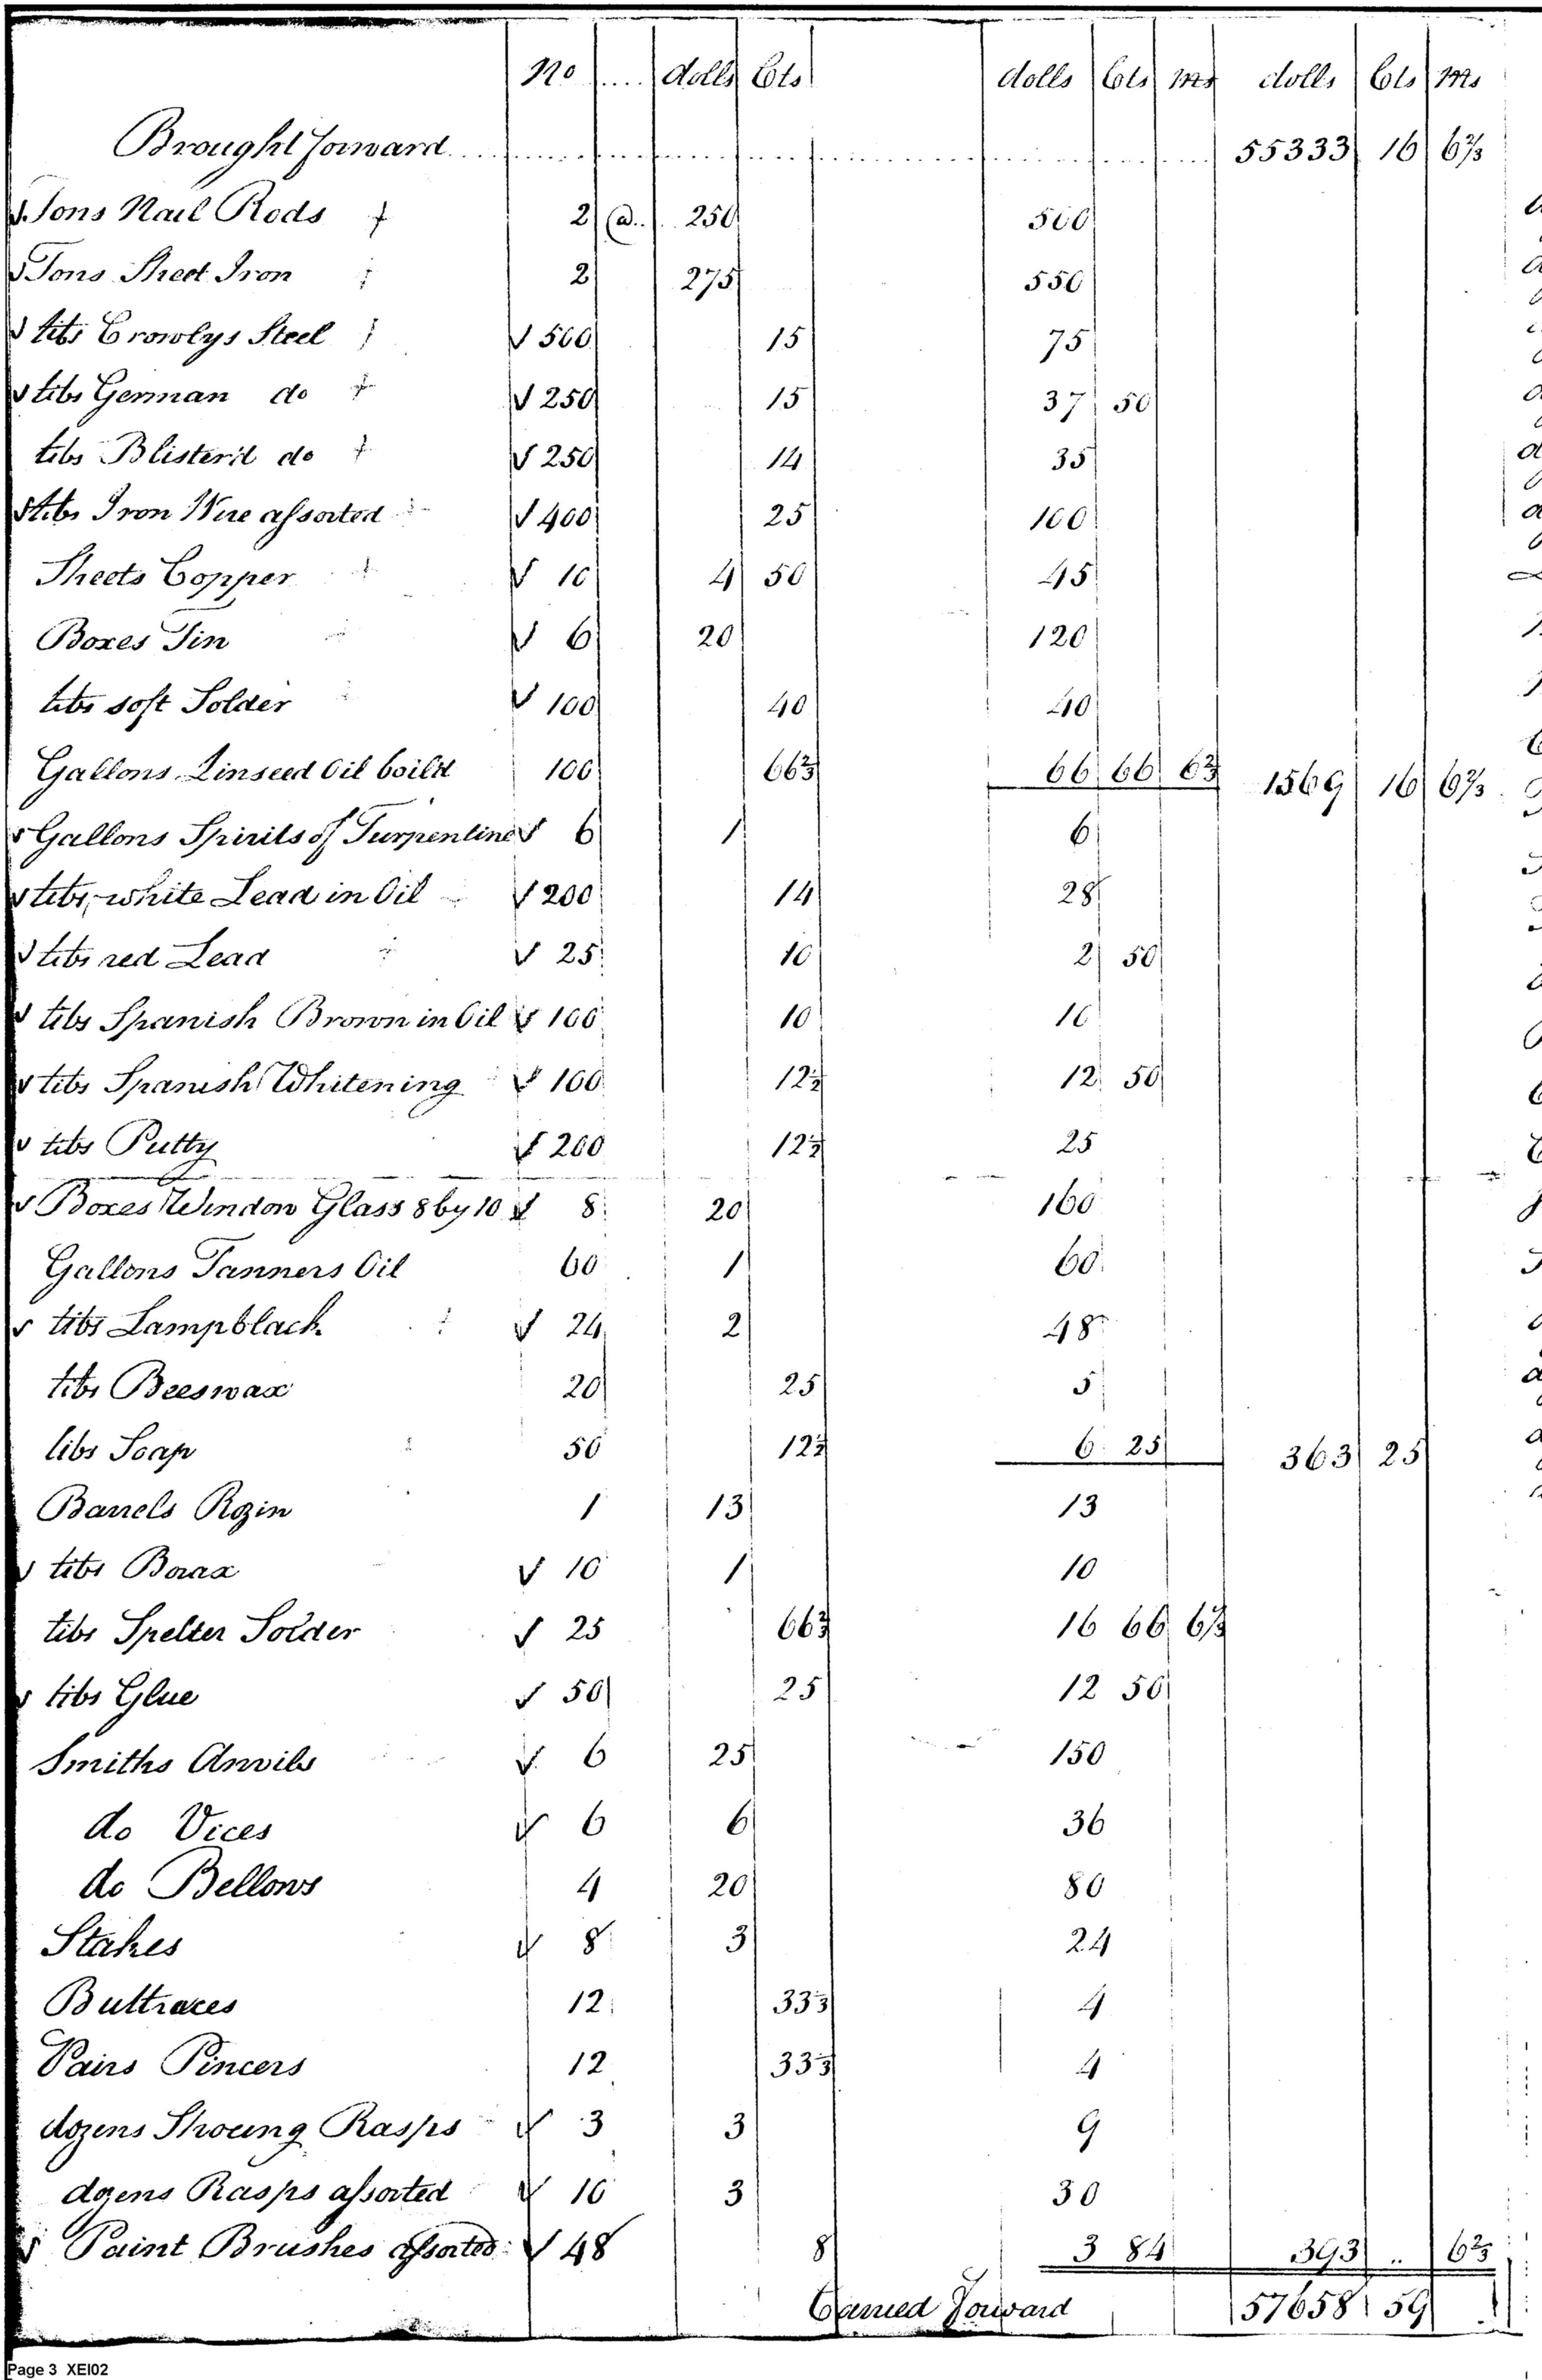 No .... dolls Cts dolls Cts ms dolls Cts ms
Brought forward 55333 16 6⅔
Tons Nail Rods 2 @ 250 500
Tons Sheet Iron 2 275 550
lbs Crowlys Steel 500 15 75
lbs German do 250 15 37 50
lbs Blister'd do 250 14 35
lbs Iron Wire assorted 400 25 100
Sheets Copper 10 4 50 45
Boxes Tin 6 20 120
lbs soft Solder 100 40 40
Gallons Linseed Oil boild 100 66⅔ 66 66 6⅔ 1569 16 6⅔
Gallons Spirits of Turpentine 6 1 6
lbs white Lead in Oil 200 14 28
lbs red Lead 25 10 2 50
lbs Spanish Brown in Oil 100 10 10
lbs Spanish Whitening 100 12½ 12 50
lbs Putty 200 12½ 25
Boxes Window Glass 8 by 10 8 20 160
Gallons Tanners Oil 60 1 60
lbs Lampblack 24 2 48
lbs Beeswax 20 25 5
lbs Soap 50 12½ 6 25 363 25
Barrels Rozin 1 13 13
lbs Borax 10 1 10
lbs Spelter Solder 25 66⅔ 16 66 6⅔
lbs Glue 50 25 12 50
Smiths Anvils 6 25 150
do Vices 6 6 36
do Bellows 4 20 80
Stakes 8 3 24
Buttraces 12 33⅓ 4
Pairs Pincers 12 33⅓ 4
dozens Shoeing Rasps 3 3 9
dozens Rasps assorted 10 3 30
Paint Brushes assorted 48 8 3 84 393 .. 6⅔
Carried Forward 57658 59
Page 3 XEI02